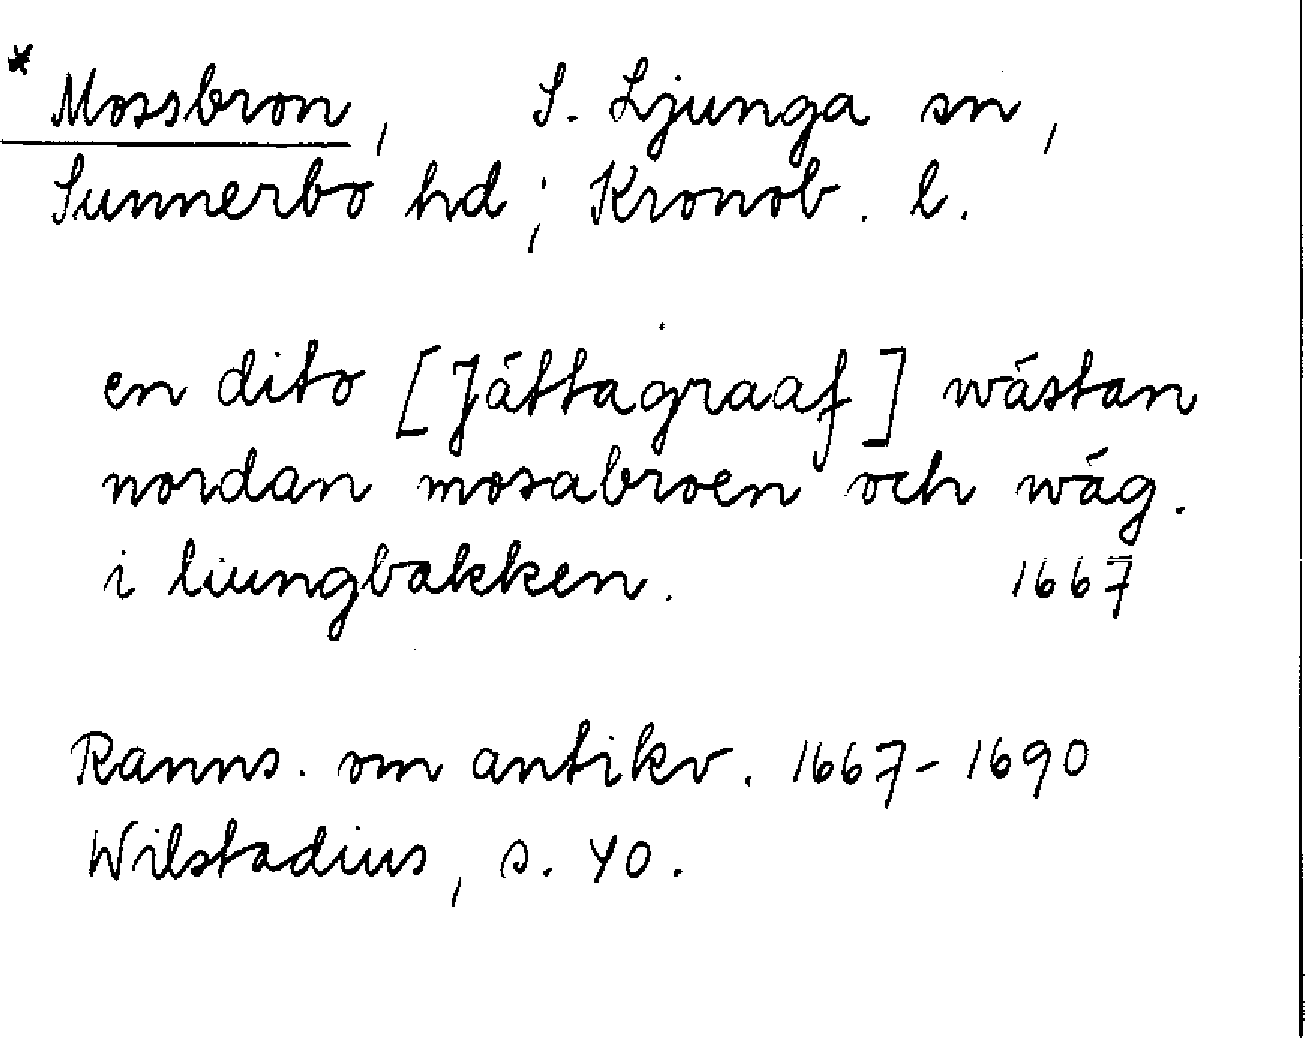 * Mossbron, S. Ljunga sn,
Sunnerbo hd, Kronob. l.
en dito [Jättagraaf] wästan
nordan mosabroen och wäg.
i liungbakken. 1667
Ranns. om antikv. 1667-1690
Wilstadius, s. 40.